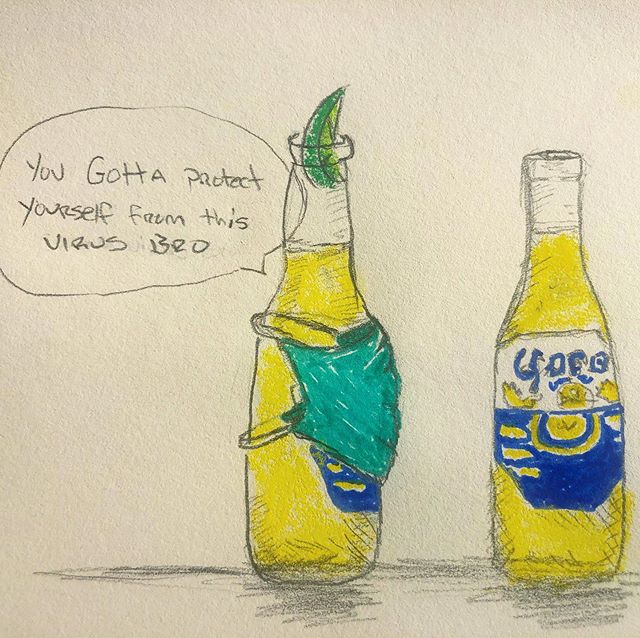 You GOttA protect
yourself from this
VIRUS BRO